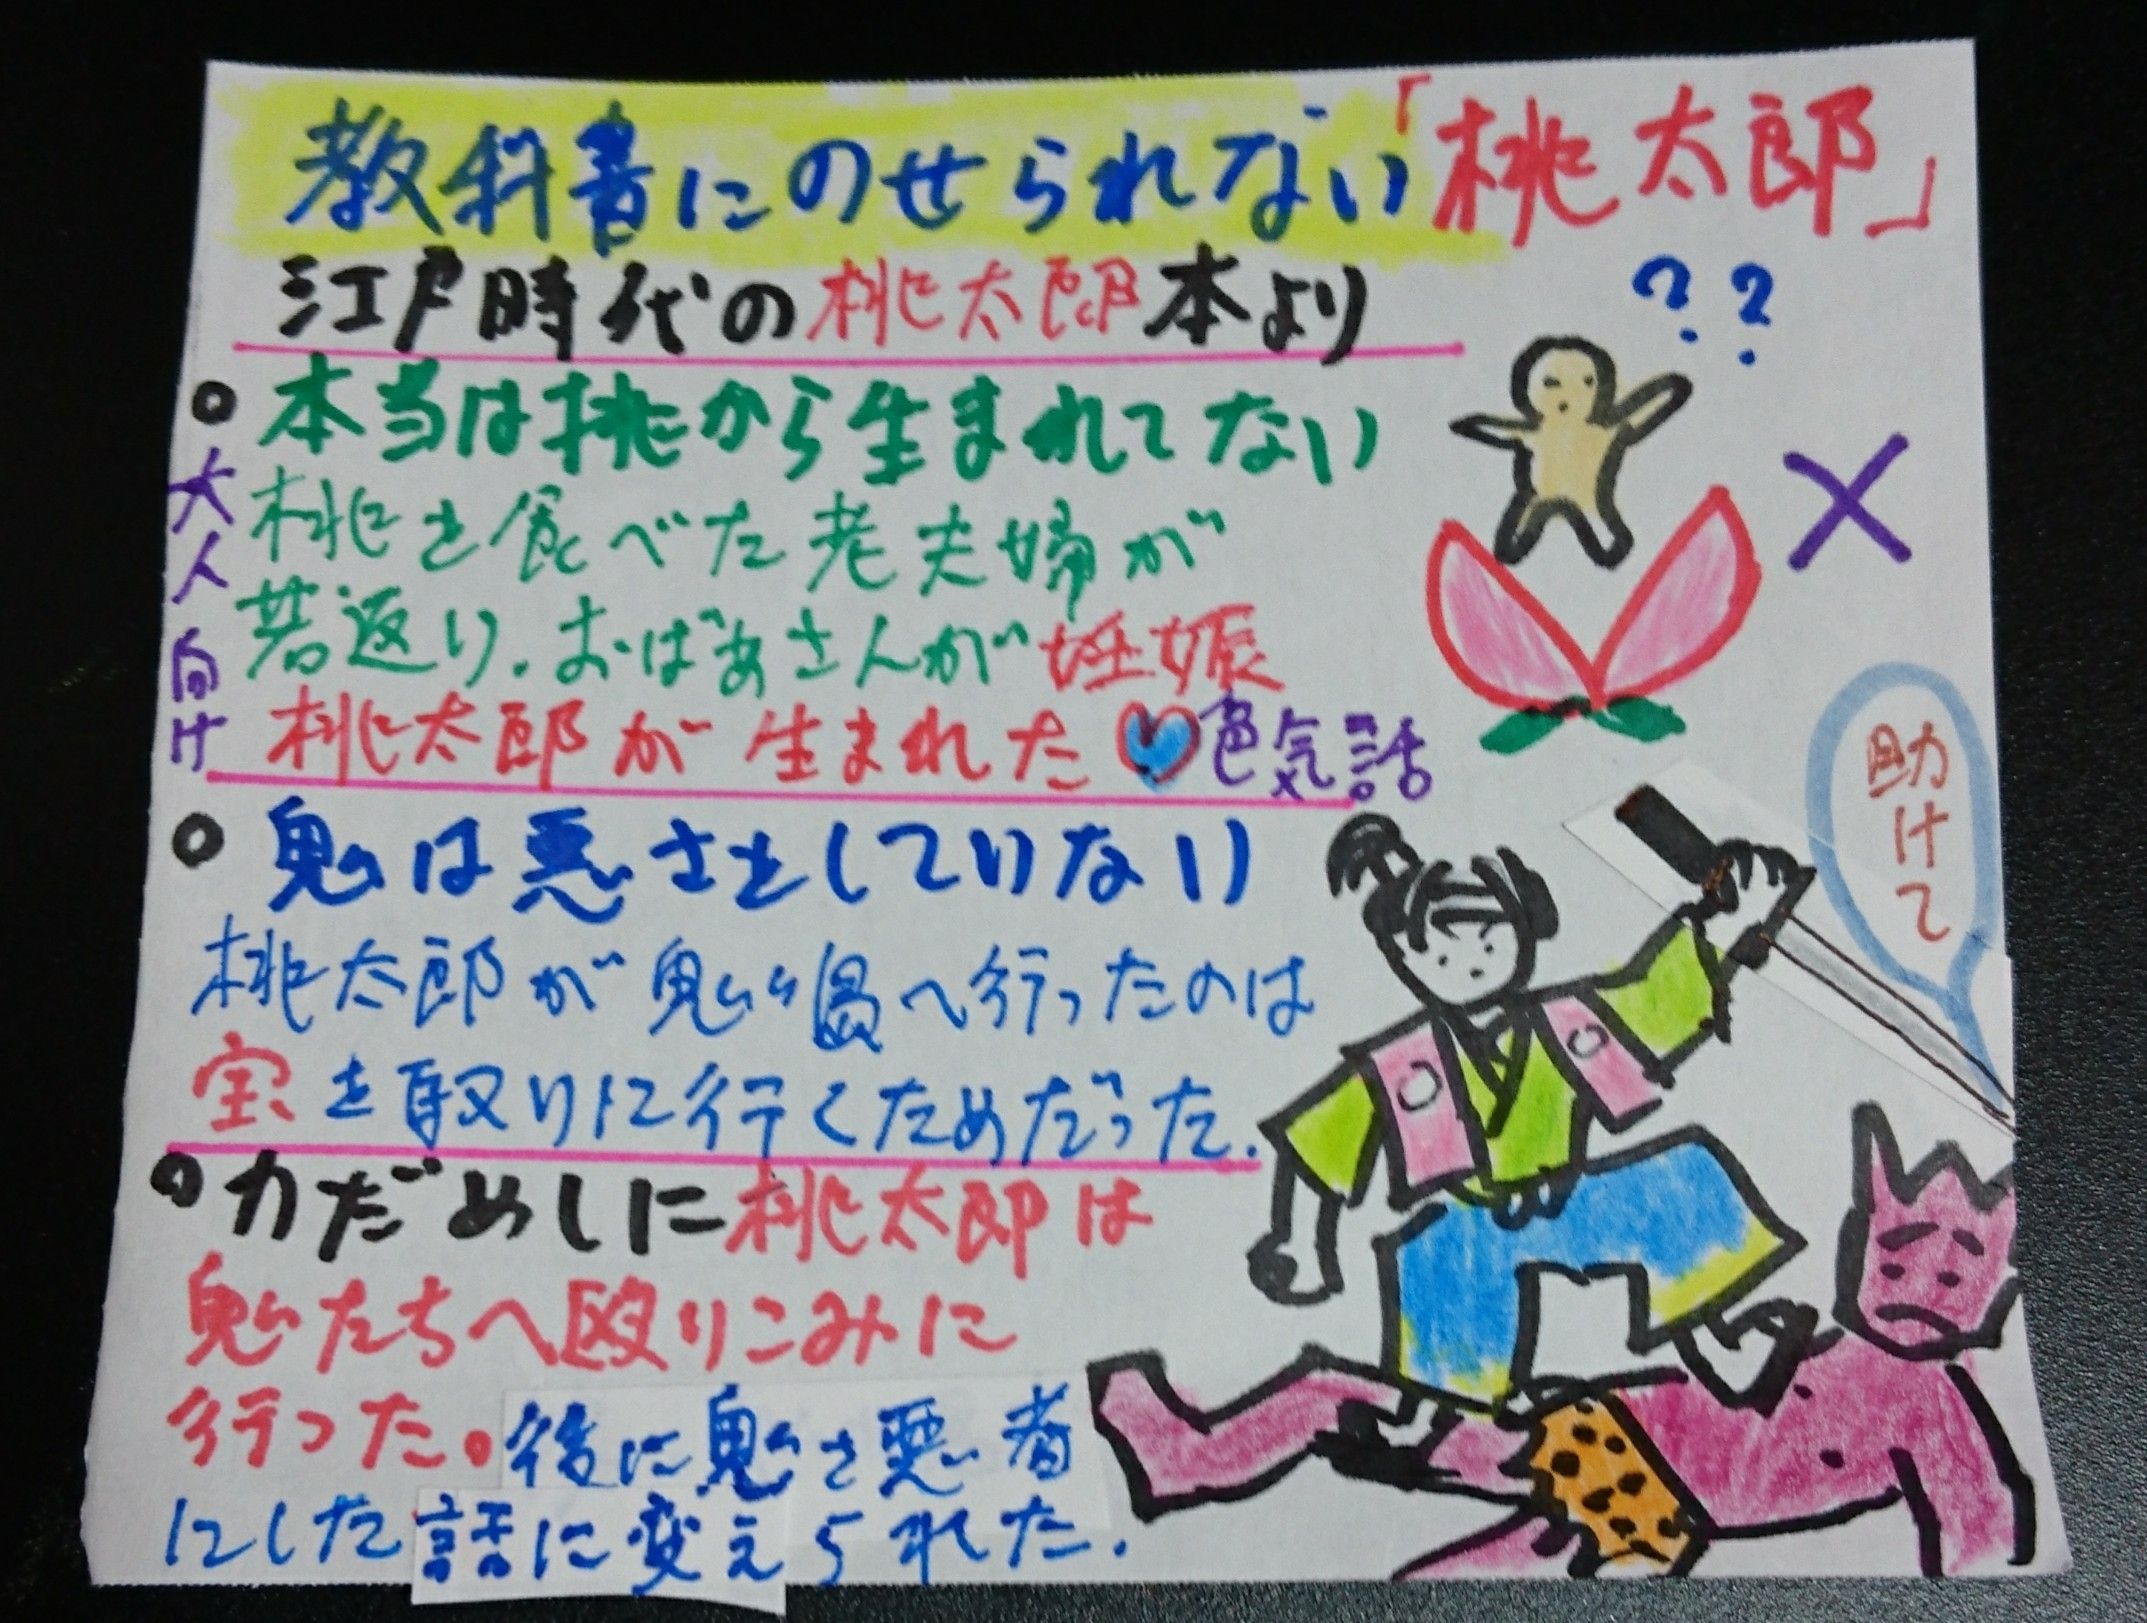 教科書にのせられない「桃太郎」
江戸時代の桃太郎本より
??
○本当は桃から生まれてない
×
大人向け
桃を食べた老夫婦が
若返り.おばあさんが妊娠
桃太郎が生まれた♡色気話
○鬼は悪さをしていない
助けて
桃太郎が鬼ヶ島へ行ったのは
宝を取りに行くためだった.
○力だめしに桃太郎は
鬼たちへ殴りこみに
行った。後に鬼を悪者
にした話に変えられた.